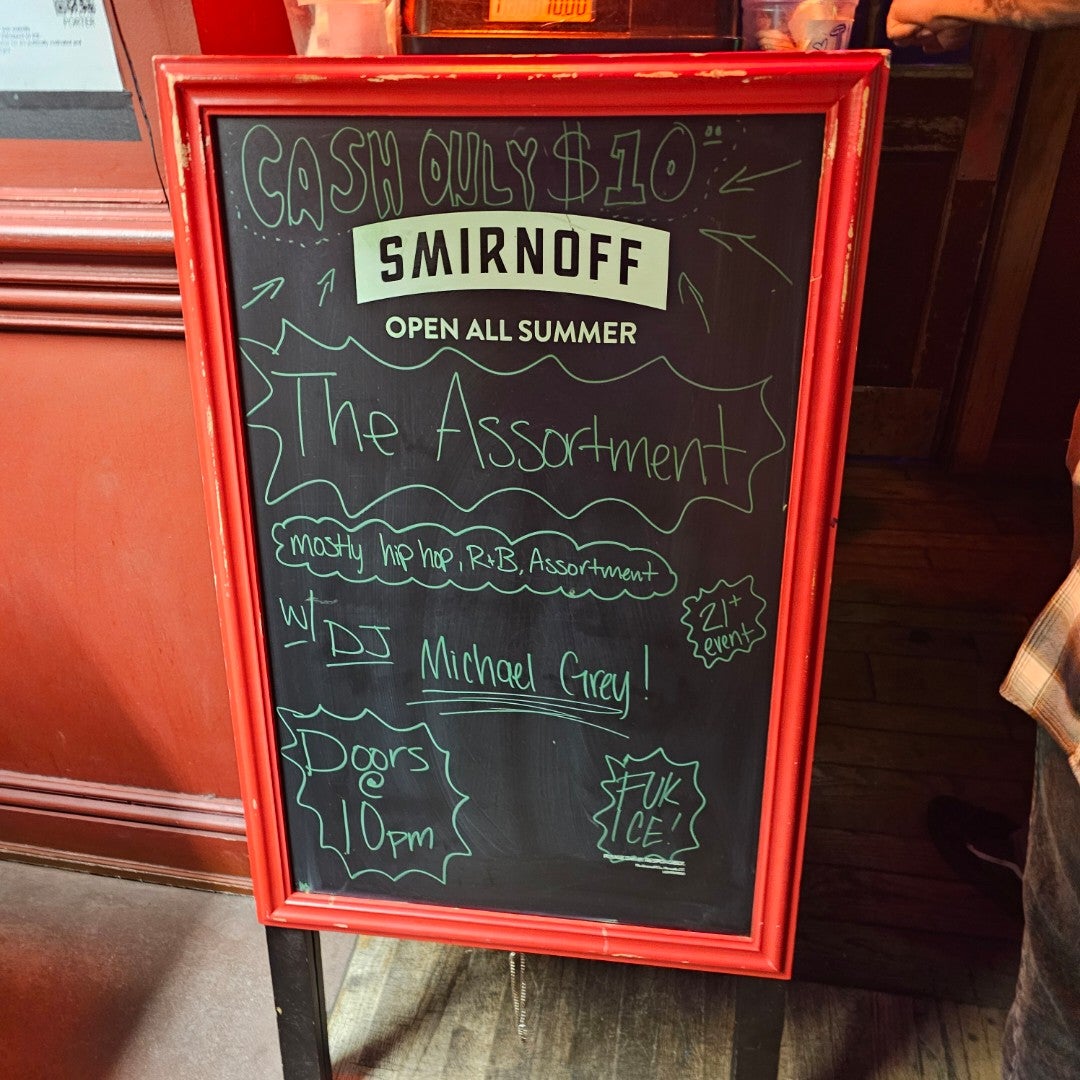 PORTER
CASH ONLY $10⁰⁰
SMIRNOFF
OPEN ALL SUMMER
The Assortment
mostly hip hop, R+B, Assortment
w/ DJ Michael Grey!
21+
event
Doors
@
10pm
FUK
ICE!